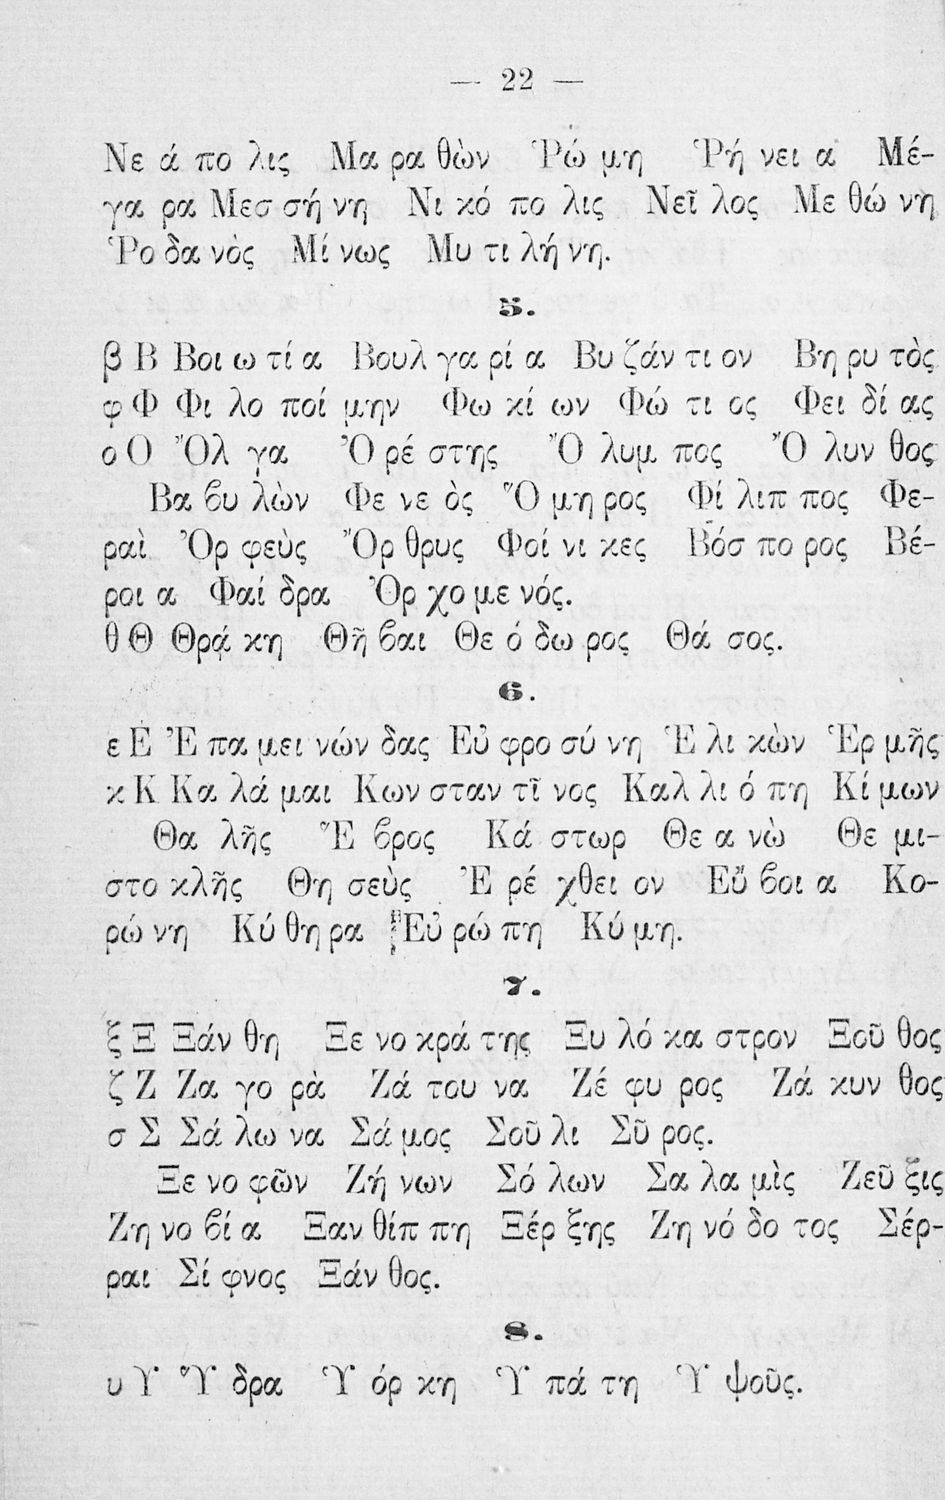 — 22 —
Νε ά πο λις Μα ρα θὼν Ῥώ μη Ῥή νει α Μέ-
γα ρα Μεσ σή νη Νι κό πο λις Νεῖ λος Με θώ νη
Ῥο δα νὸς Μί νως Μυ τι λή νη.
5.
β Β Βοι ω τί α Βουλ γα ρί α Βυ ζάν τι ον Βη ρυ τὸς
φ Φ Φι λο ποί μην Φω κί ων Φώ τι ος Φει δί ας
ο Ο Ὄλ γα Ὀ ρέ στης Ὄ λυμ πος Ὄ λυν θος
Βα ϐυ λὼν Φε νε ὸς Ὅ μη ρος Φί λιπ πος Φε-
ραὶ Ὀρ φεὺς Ὄρ θρυς Φοί νι κες Βόσ πο ρος Βέ-
ροι α Φαί δρα Ὀρ χο με νός.
θ Θ Θρᾴ κη Θῆ ϐαι Θε ό δω ρος Θά σος.
6.
ε Ε Ἐ πα μει νών δας Εὐ φρο σύ νη Ἑ λι κὼν Ἑρ μῆς
κ Κ Κα λά μαι Κων σταν τῖ νος Καλ λι ό πη Κί μων
Θα λῆς Ἕ ϐρος Κά στωρ Θε α νὼ Θε μι-
στο κλῆς Θη σεὺς Ἐ ρέ χθει ον Εὔ ϐοι α Κο-
ρώ νη Κύ θη ρα Εὐ ρώ πη Κύ μη.
7.
ξ Ξ Ξάν θη Ξε νο κρά της Ξυ λό κα στρον Ξοῦ θος
ζ Ζ Ζα γο ρὰ Ζά του να Ζέ φυ ρος Ζά κυν θος
σ Σ Σά λω να Σά μος Σοῦ λι Σῦ ρος.
Ξε νο φῶν Ζή νων Σό λων Σα λα μὶς Ζεῦ ξις
Ζη νο ϐί α Ξαν θίπ πη Ξέρ ξης Ζη νό δο τος Σέρ-
ραι Σί φνος Ξάν θος.
8.
υ Υ Ὕ δρα Ὑ όρ κη Ὑ πά τη Ὑ ψοῦς.